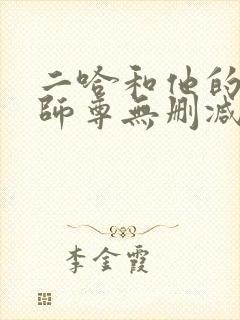 二哈和他的
師尊無删减
李金霞